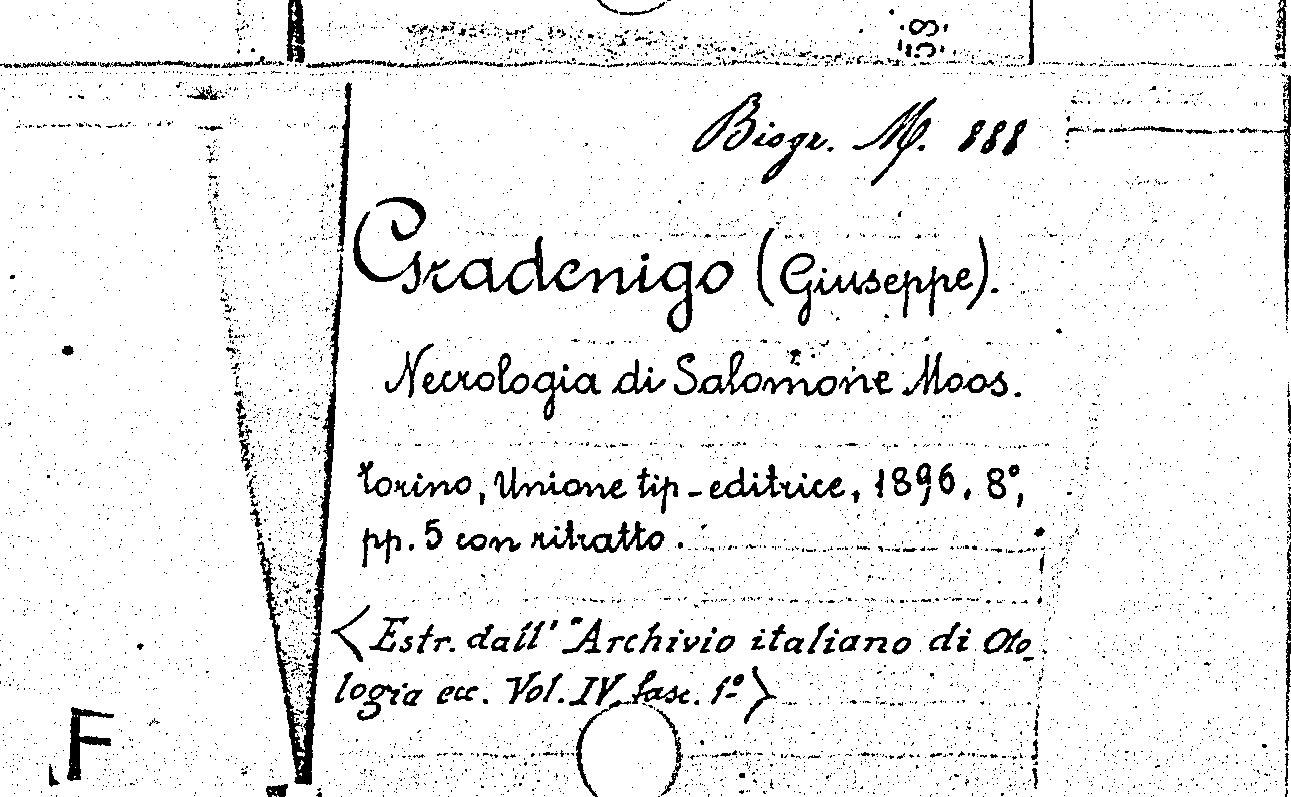 Biogr. M. 888
Gradenigo (Giuseppe).
Necrologia di Salomone Moos.
Torino, Unione tip-editrice, 1896. 8°,
pp. 5 con ritratto.
<Estr. dall' "Archivio italiano di Oto_
logia ecc. Vol. IV, fasc. 1°>
F